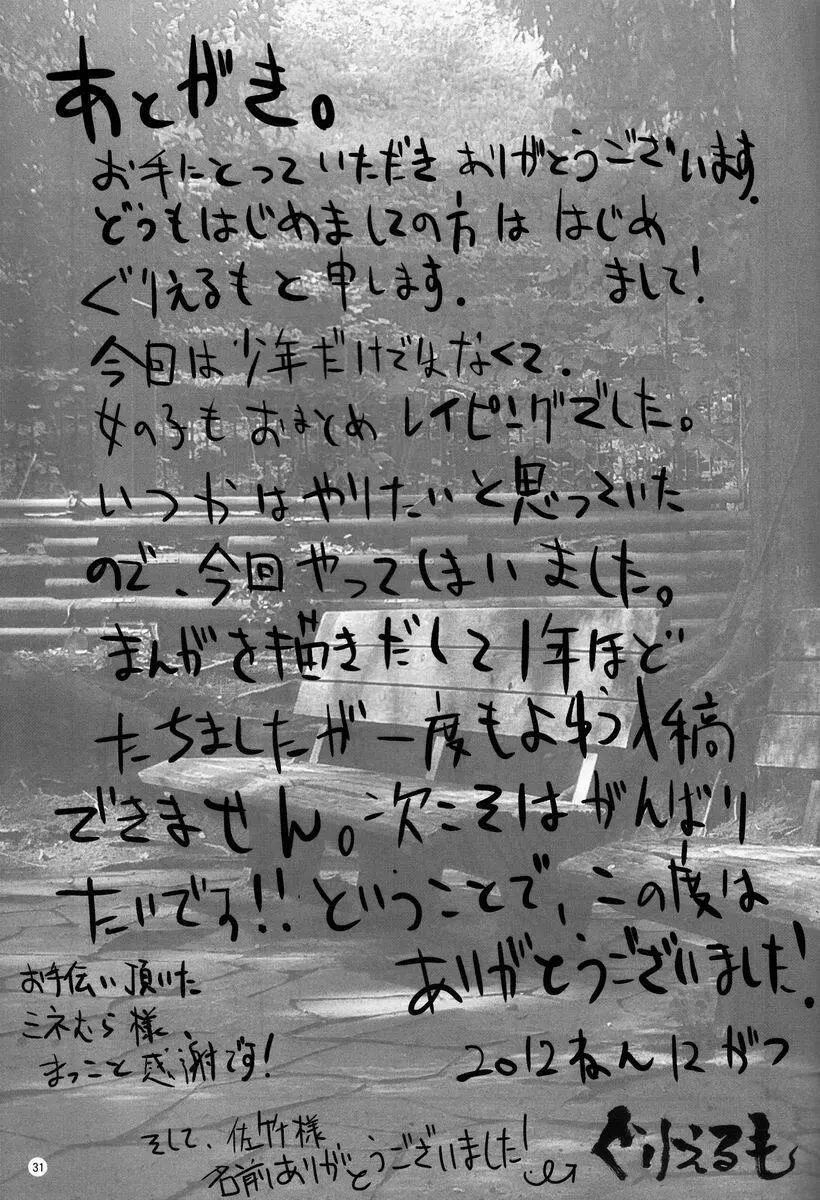 あとがき。
お手にとっていただき ありがとうございます。
どうもはじめましての方は はじめ
まして!
ぐりえるもと申します。
今回は少年だけではなくて、
女の子もおまとめ レイピングでした。
いつかはやりたいと思っていた
ので、今回やってしまいました。
まんがを描きだして1年ほど
たちましたが一度もよゆう入稿
できません。次こそはがんばり
たいです!! ということで、この度は
ありがとうございました!
お手伝い頂いた
ミネむら様、
まっこと感謝です!
2012ねん12がつ
そして、佐竹様
名前ありがとうございました!
ぐりえるも
31